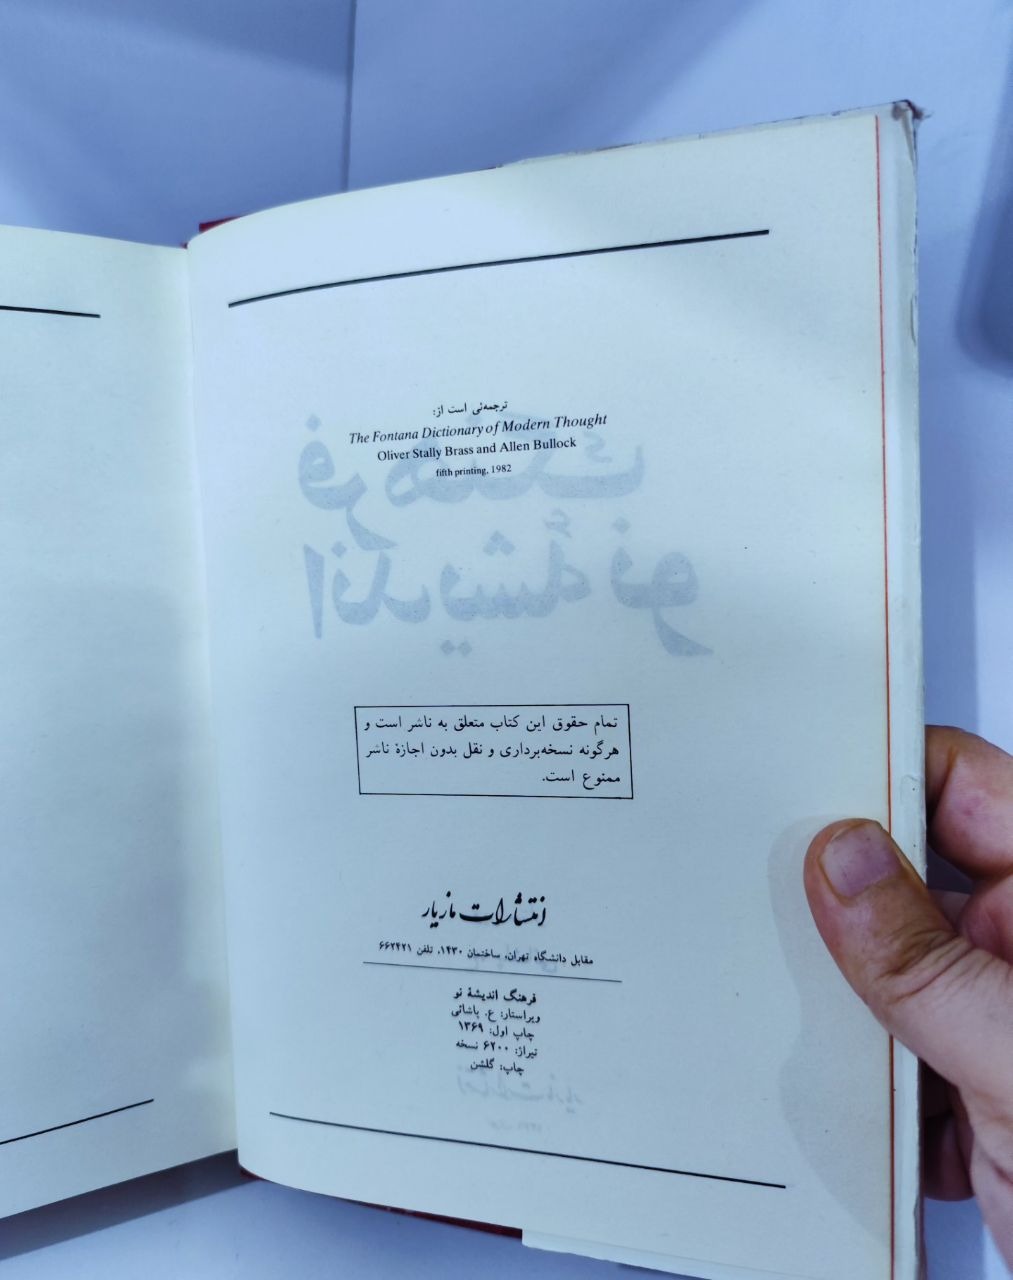 ترجمه‌ئی است از:
The Fontana Dictionary of Modern Thought
Oliver Stally Brass and Allen Bullock
fifth printing, 1982
فرهنگ
اندیشهٔ نو
تمام حقوق این کتاب متعلق به ناشر است و
هرگونه نسخه‌برداری و نقل بدون اجازهٔ ناشر
ممنوع است.
انتشارات مازیار
مقابل دانشگاه تهران، ساختمان ۱۴۳۰، تلفن ۶۶۲۴۲۱
فرهنگ اندیشهٔ نو
ویراستار: ع. پاشائی
چاپ اول: ۱۳۶۹
تیراژ: ۶۲۰۰ نسخه
چاپ: گلشن